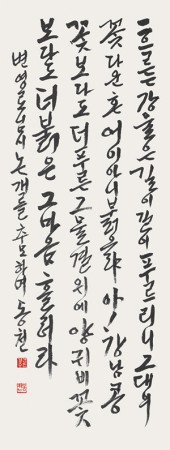 흐르는 강물은 길이길이 푸르리니 그대의
꽃다운 혼 어이 아니 붉으랴 아! 강남콩
꽃보다도 더 푸른 그 물결 위에 양귀비꽃
보다도 더 붉은 그 마음 흘러라
변영로 논개를 추모하여 동천